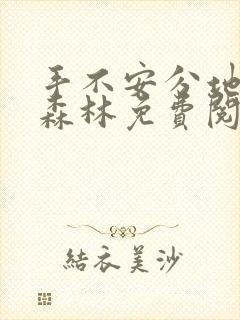 手不安分地
森林免费阅
結衣美沙